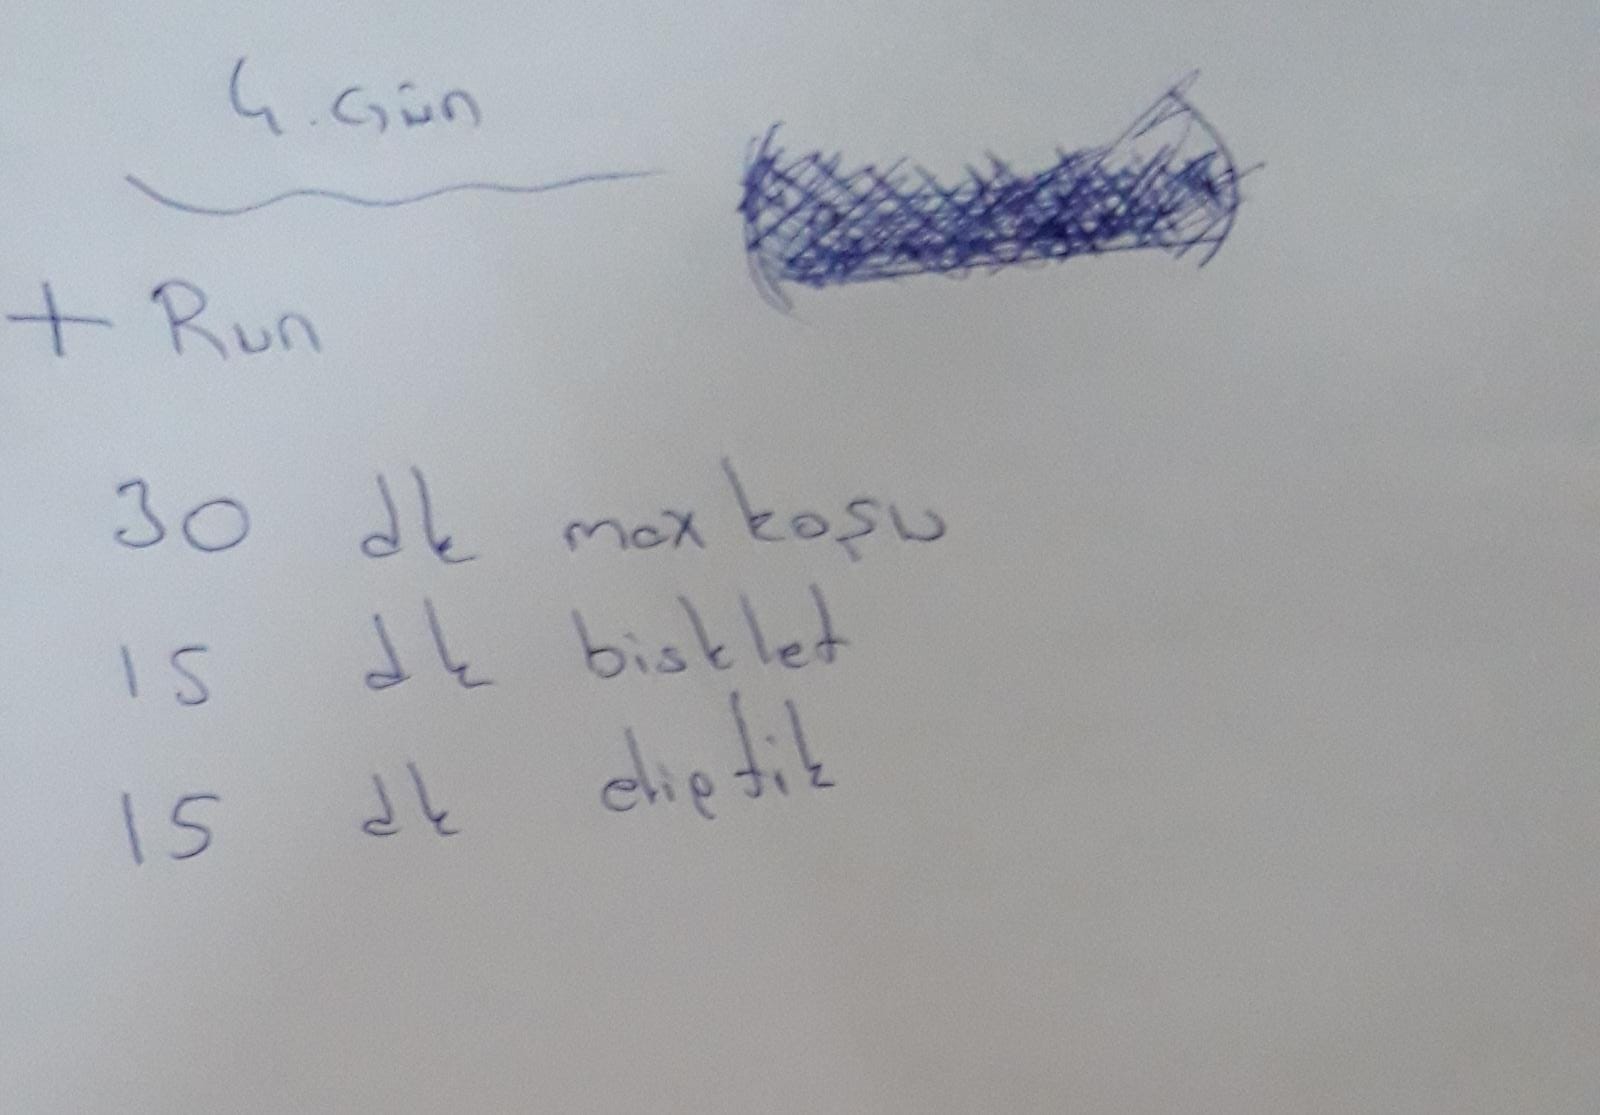 4. Gün
+ Run
30 dk max koşu
15 dk bisklet
15 dk eliptik